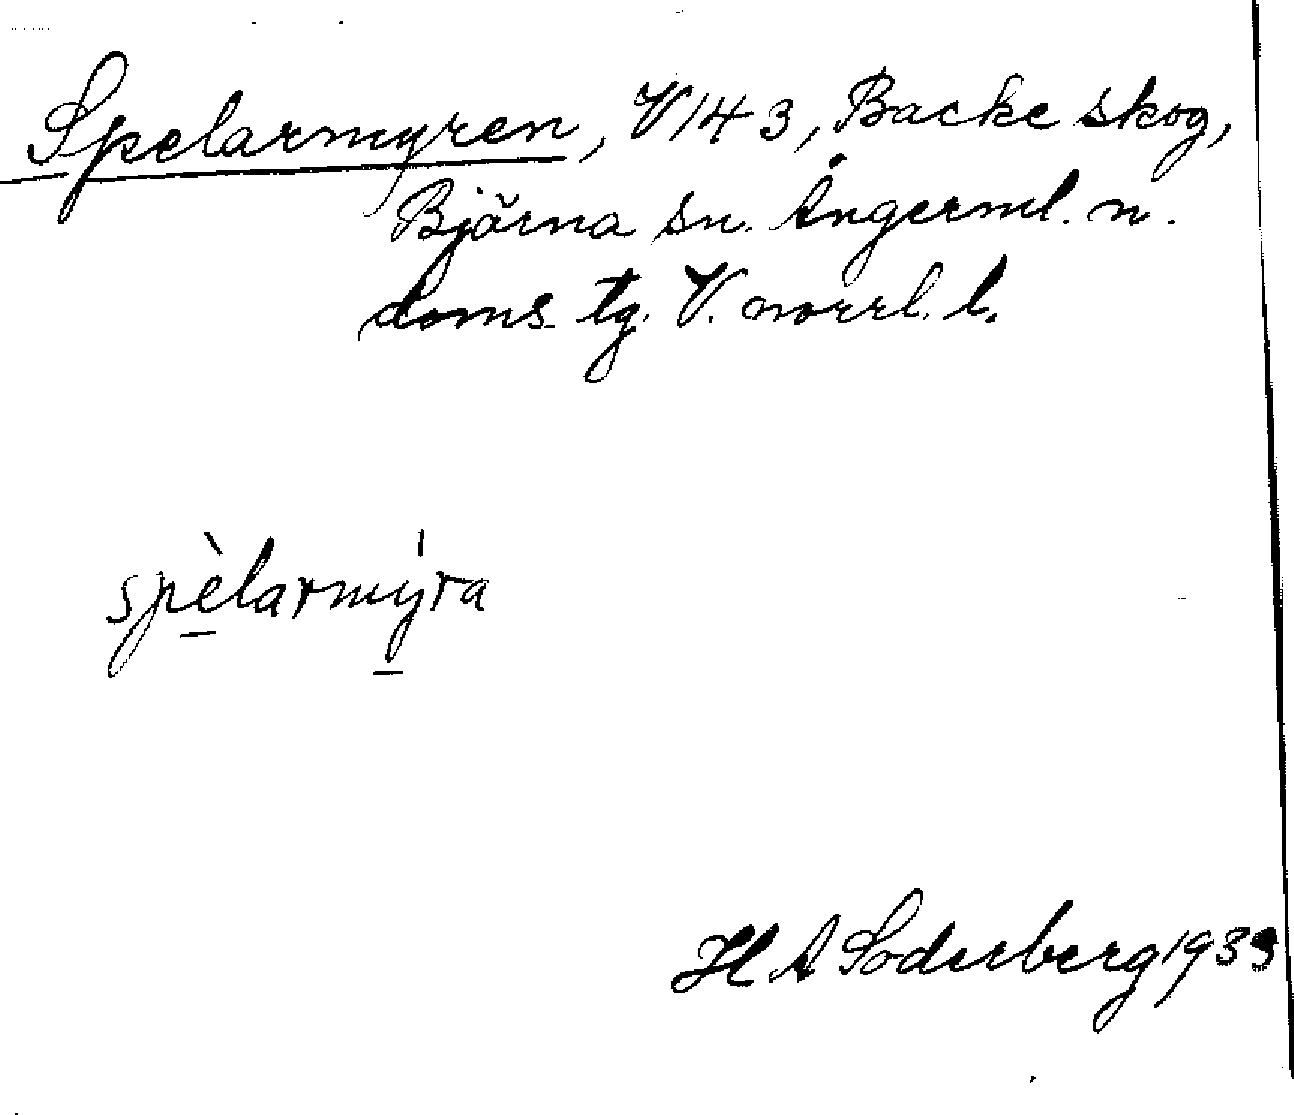 Spelarmyren, V 14 3, Backe skog,
Björna sn. Ångerml. n.
doms. tg. V. norrl. l.
spè̱larmý̱ra
H A Söderberg 1933